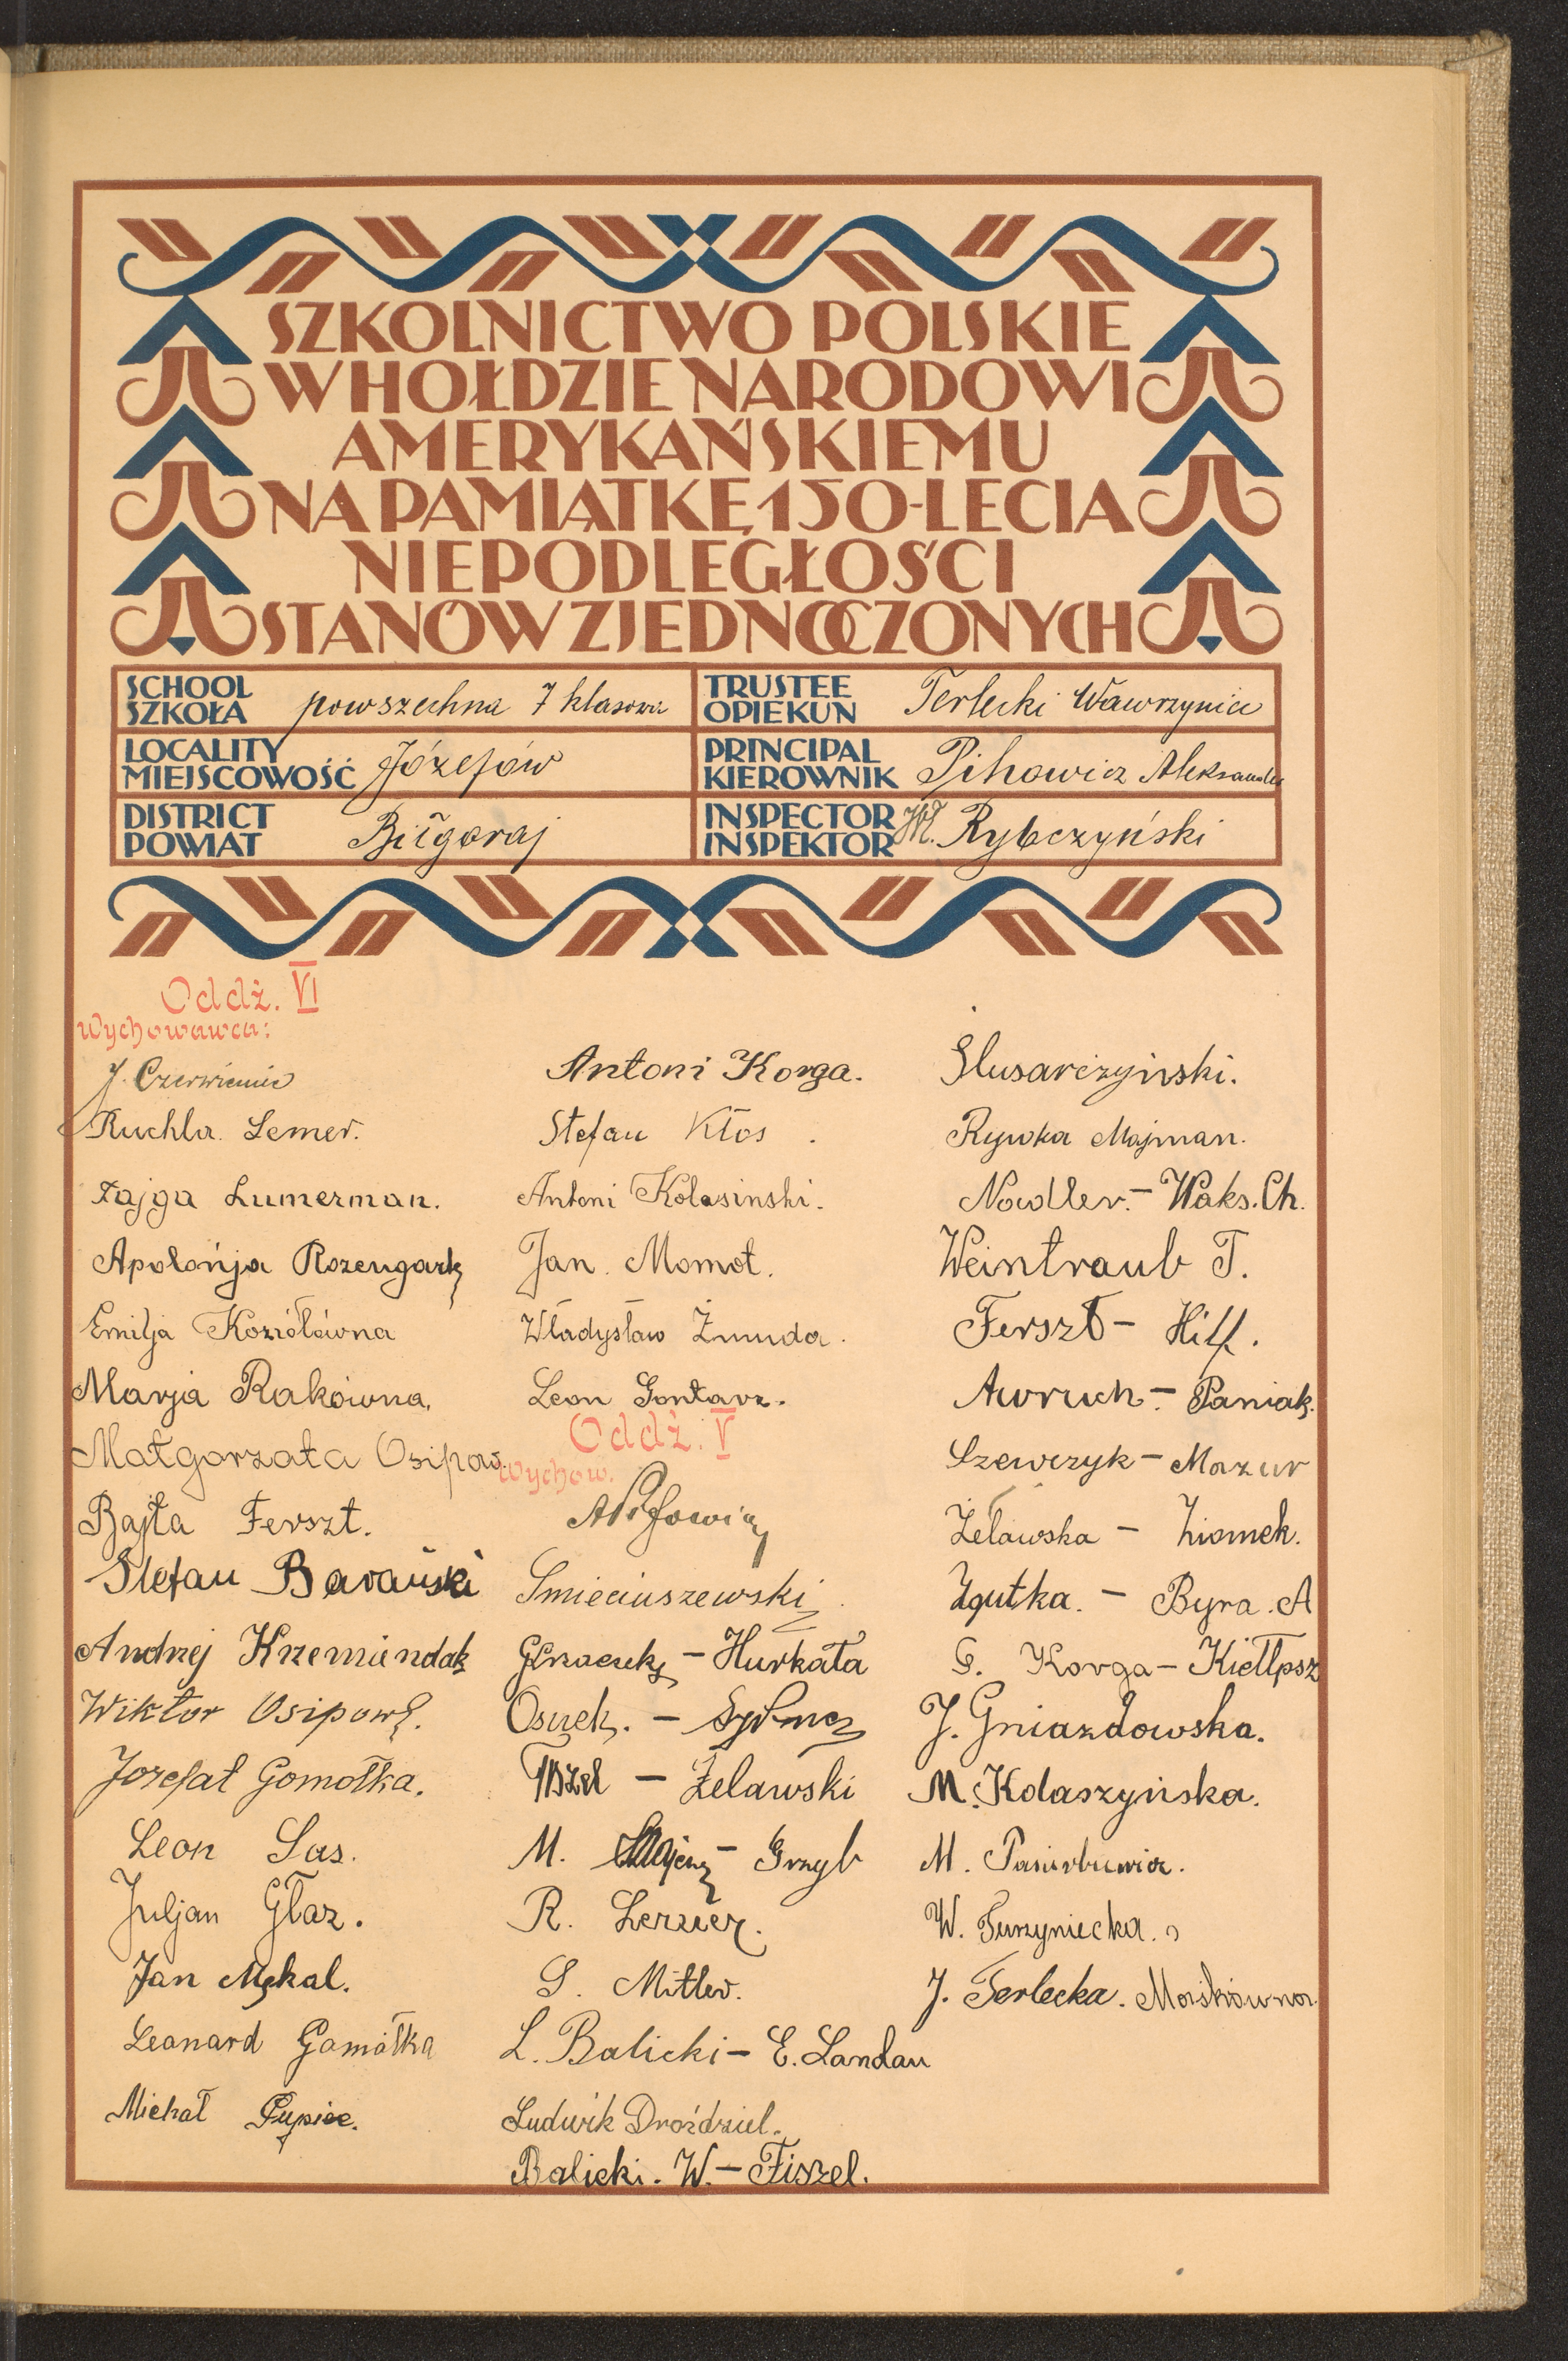 SZKOLNICTWO POLSKIE
W HOŁDZIE NARODOWI
AMERYKAŃSKIEMU
NA PAMIĄTKĘ 150-LECIA
NIEPODLEGŁOŚCI
STANÓW ZJEDNOCZONYCH
SCHOOL
SZKOŁA powszechna 7 klasowa
TRUSTEE
OPIEKUN Terlecki Wawrzyniec
LOCALITY
MIEJSCOWOŚĆ Józefów
PRINCIPAL
KIEROWNIK Pihowicz Aleksander
DISTRICT
POWIAT Biłgoraj
INSPECTOR
INSPEKTOR Wł. Rybczyński
Oddz. VI
Wychowawca:
J. Czerwieniec
Ruchla Lemer.
Fajga Lumerman.
Apolońja Rozengart
Emilja Koziołówna
Marja Rakówna.
Małgorzata Osipow.
Bajta Ferszt.
Stefan Barański
Andrzej Krzemiendak
Wiktor Osipow.
Jozefat Gomółka.
Leon Sas.
Juljan Głaz.
Jan Mękal.
Leonard Gamółka
Michał Pupiec.
Antoni Korga.
Stefan Kłos.
Antoni Kolasinski.
Jan. Momot.
Władysław Żmuda.
Leon Gontarz.
Oddz. V
Wychow.
Smieciuszewski
- Hurkała
Osuch. -
- Żelawski
M. - Grzyb
R. Lerner.
S. Mitler.
L. Balicki - E. Landau
Ludwik Droździel.
Balicki. W. - Fiszel.
Slusarczyński.
Rywka Majman.
Nodler. - Waks. Ch.
Weintraub T.
Ferszt - Hilf.
Awruch. - Paniak.
Szewczyk - Mazur
Żelawska - Ziomek.
Zgutka. - Byra. A
G. Korga - Kiełbsz
J. Gniazdowska.
M. Kolaszyńska.
M. Pasiurbiewicz.
W. Turzyniecka.
J. Terlecka. Moskówna.